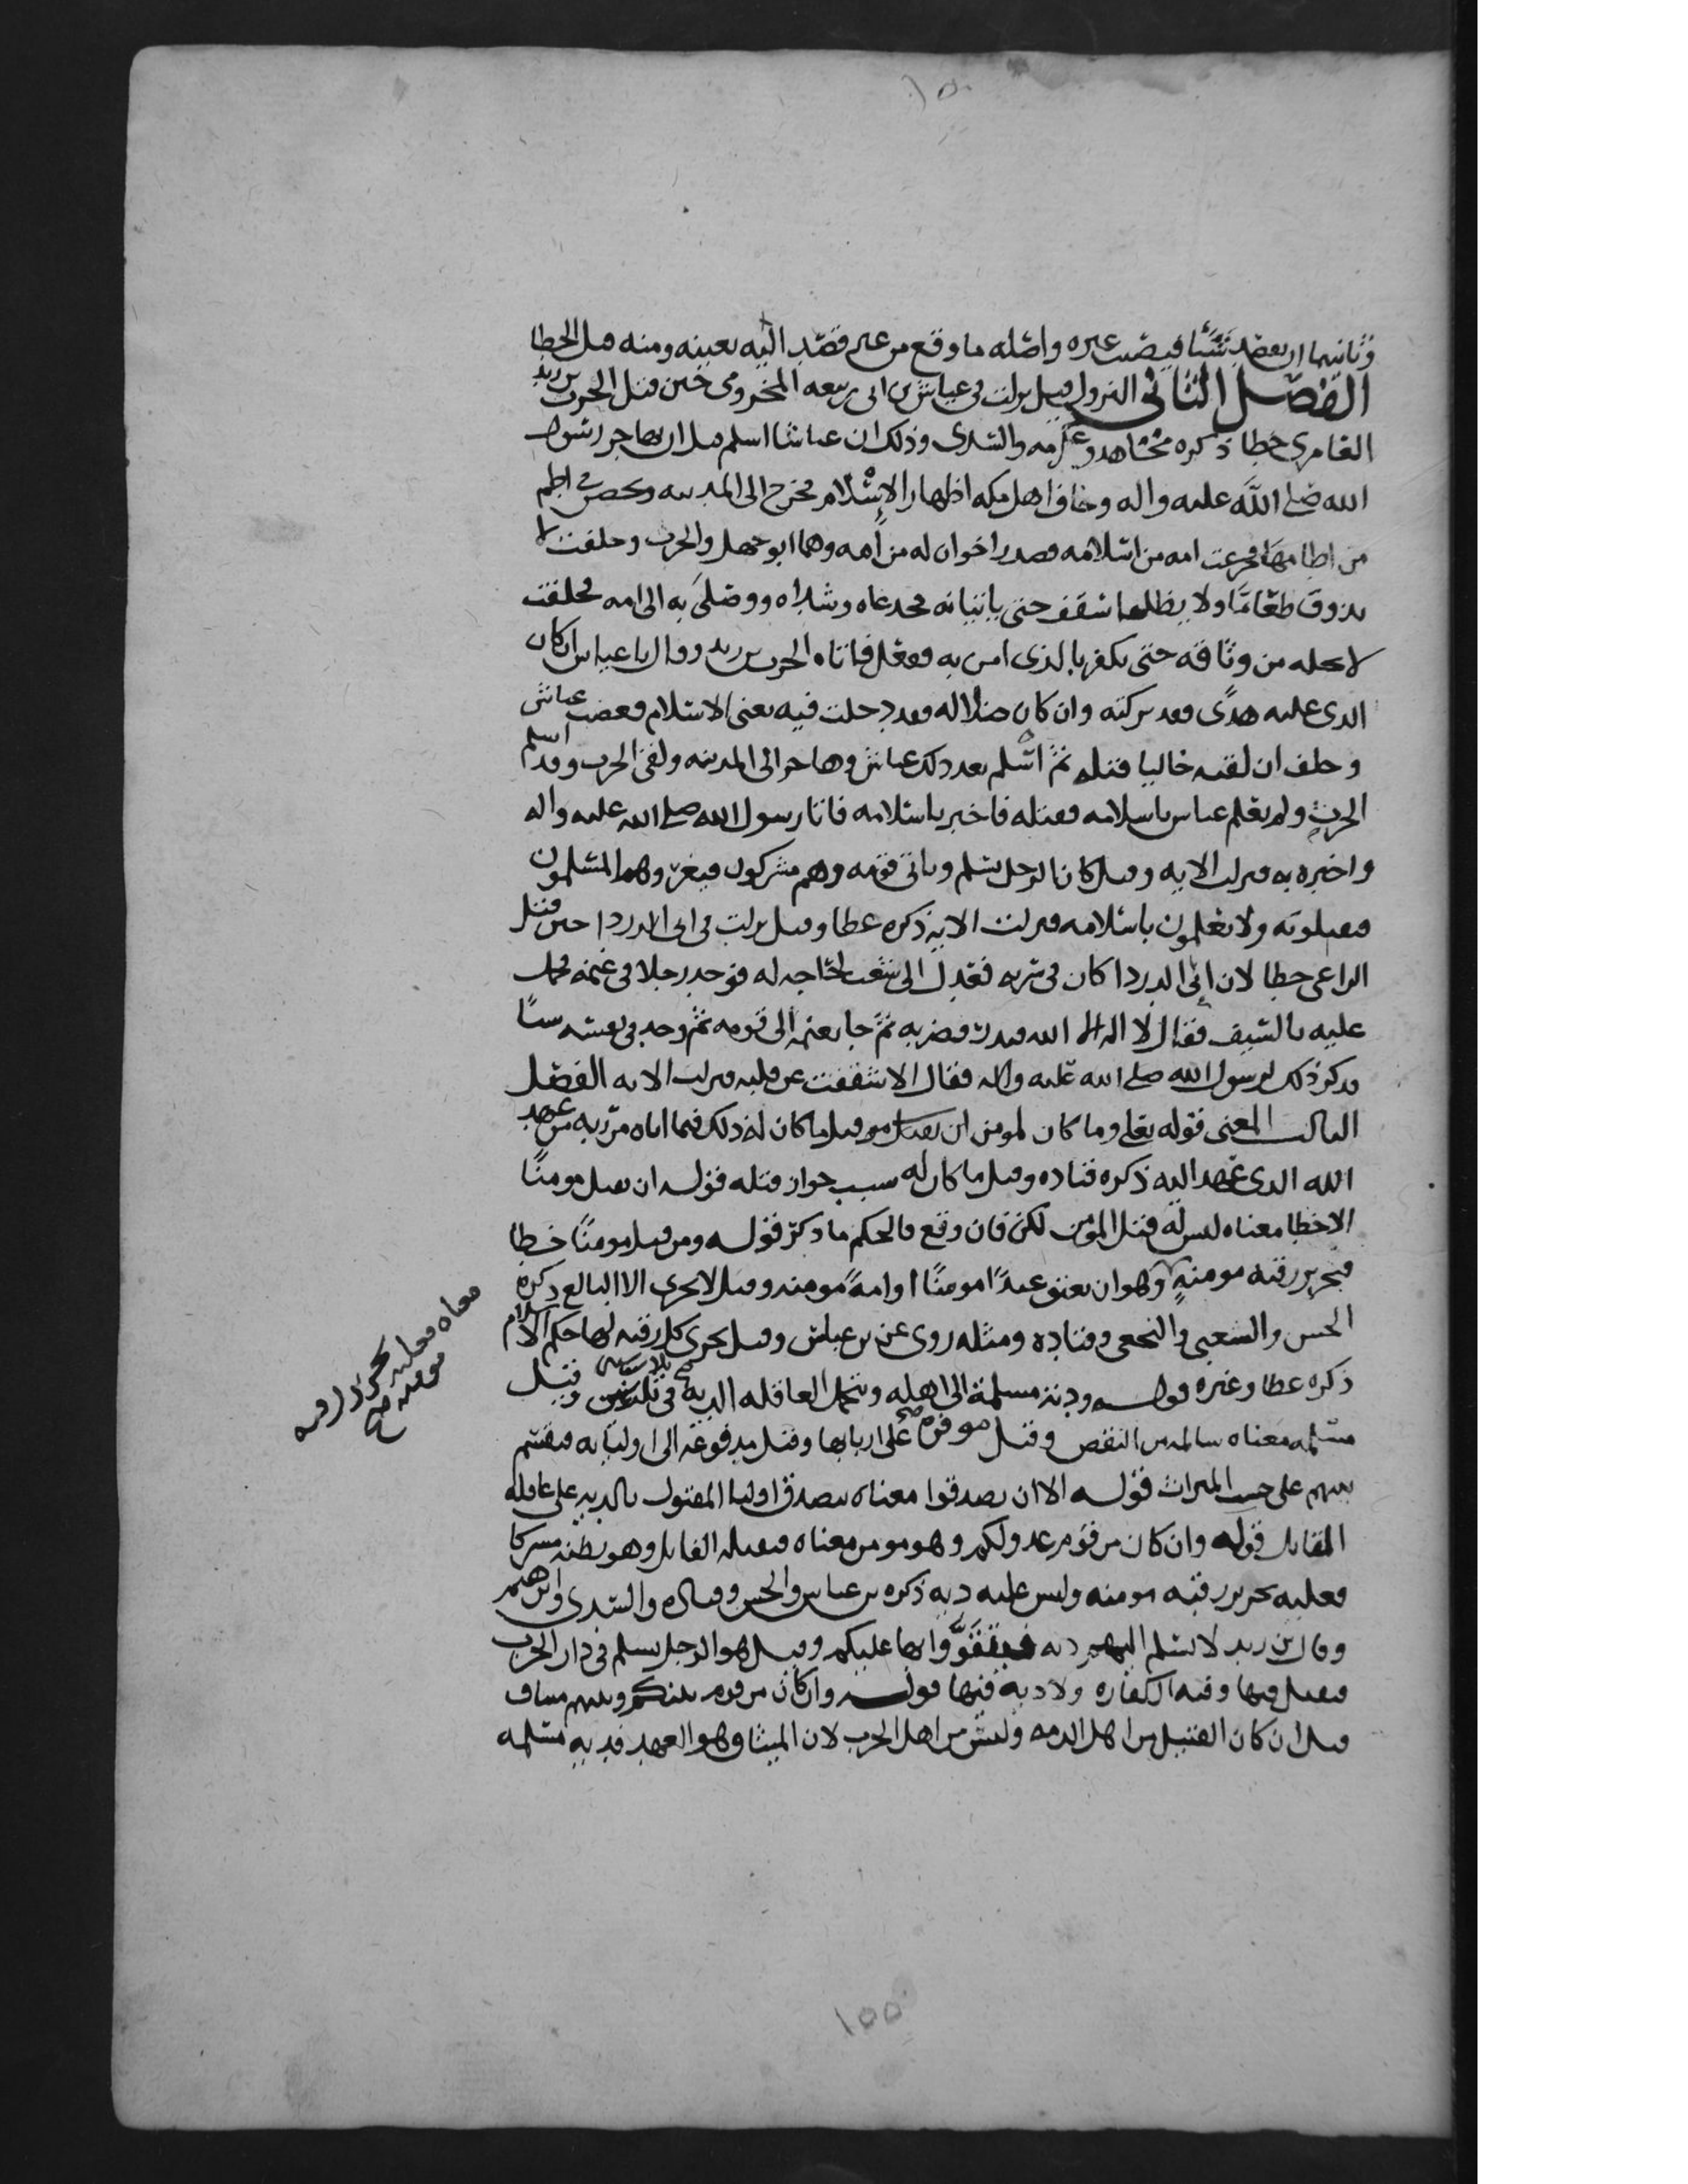 وثانيهما ان يقصد شيئا فيصيب غيره واصله ما وقع من غير قصد اليه بعينه ومنه قتل الخطا
الفصل الثاني النزول قيل نزلت في عياش بن ابي ربيعه المخزومي حين قتل الحرث بن زيد
العامري خطا ذكره مجاهد وعكرمه والسدي وذلك ان عياشا اسلم قبل ان يهاجر رسول
الله صلى الله عليه واله وخاف اهل مكه اظهار الاسلام فخرج الى المدينه وتحصن في اطم
من اطامها فجزعت امه من اسلامه فصدر اخوان له من امه وهما ابو جهل والحرث وحلفت لا
تذوق طعاما ولا يظلها سقف حتى ياتيانه فخدعاه وشداه ووصلا به الى امه فحلفت
لا تحله من وثاقه حتى يكفر بالذي امن به ففعل فاتاه الحرث بن زيد وقال يا عياش ان كان
الذي عليه هدى فقد تركته وان كان ضلاله فقد دخلت فيه يعني الاسلام فغضب عياش
وحلف ان لقيه خاليا قتله ثم اسلم بعد ذلك عياش وهاجر الى المدينه ولقي الحرث وقد اسلم
الحرث ولم يعلم عياش باسلامه فقتله فاخبر باسلامه فاتا رسول الله صلى الله عليه واله
واخبره به فنزلت الايه وقيل كان الرجل يسلم وياتي قومه وهم مشركون فيغزوهم المسلمون
فيقتلونه ولا يعلمون باسلامه فنزلت الايه ذكره عطا وقيل نزلت في ابي الدردا حين قتل
الراعي خطا لان ابي الدردا كان في سريه فعدل الى شعب لحاجه له فوجد رجلا في غنمه فحمل
عليه بالسيف فقال لا اله الا الله فبدر فضربه ثم جا بغنمه الى قومه ثم وجد في نفسه شيئا
فذكر ذلك لرسول الله صلى الله عليه واله فقال الا شققت عن قلبه فنزلت الايه الفصل
الثالث المعنى قوله تعالى وما كان لمومن ان يقتل مومنا قيل ما كان له ذلك فيما اتاه من ربه من عهد
الله الذي عهد اليه ذكره قتاده وقيل ما كان له سبب جواز قتله قوله ان يقتل مومنا
الا خطا معناه ليس له قتل المومن لكن فان وقع فالحكم ما ذكر قوله ومن قتل مومنا خطا
فتحرير رقبه مومنة وهو ان يعتق عبدا مومنا او امة مومنه وقيل لا يجزي الا البالغ ذكره
الحسن والشعبي والنخعي وقتاده ومثله روي عن بن عباس وقيل يجزي كل رقبه لها حكم الاسلام
ذكره عطا وغيره قوله ودية مسلمة الى اهله وتحمل العاقله الديه في ثلاث سنين وقيل
مسلمه معناه سالمه من النقص وقيل موفره على اربابها وقيل مدفوعه الى اوليائه فيقسم
بينهم على حسب الميراث قوله الا ان يصدقوا معناه يتصدق اوليا المقتول بالديه على عاقله
القاتل قوله وان كان من قوم عدو لكم وهو مومن معناه فيقتله القاتل وهو يظنه مشركا
فعليه تحرير رقبه مومنه وليس عليه ديه ذكره بن عباس والحسن وقتاده والسدي وابرهيم
وقال بن زيد لا تسلم اليهم ديه فيتقووا بها عليكم وقيل هو الرجل يسلم في دار الحرب
فيقتل فيها وفيه الكفاره ولا ديه فيها قوله وان كان من قوم بينكم وبينهم ميثاق
قيل ان كان القتيل من اهل الذمه وليس من اهل الحرب لان الميثاق وهو العهد فديه مسلمه
معناه فعليه تحرير رقبه
مومنه صح
١٥٥